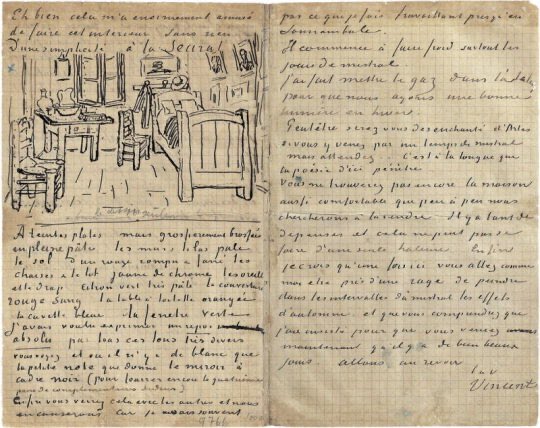 Eh bien cela m'a enormement amusé
de faire cet interieur sans rien
D'une simplicité à la Seurat
A teintes plates mais grossierement brossées
en pleine pâte les murs lilas pale
le sol d'un rouge rompu & fané les
chaises & le lit jaune de chrome les oreillers
et le drap citron vert très pâle la couverture
rouge sang la table à toilette orangée
la cuvette bleue la fenetre verte
J'avais voulu exprimer un repos
absolu par tous ces tons très divers
vous voyez et où il n'y a de blanc que
la petite note que donne le miroir à
cadre noir (pour fourrer encore la quatrième
paire de complementaires dedans)
Enfin vous verrez cela avec les autres et nous
en causerons car je ne sais souvent
pas ce que je fais travaillant presqu'en
somnambule.
Il commence à faire froid surtout les
jours de mistral
j'ai fait mettre le gaz dans l'atelier
pour que nous ayons une bonne
lumière en hiver
Peutêtre serez vous desenchanté d'Arles
si vous y venez par un temps de mistral
mais attendez... C'est à la longue que
la poésie d'ici pénètre
Vous ne trouverez pas encore la maison
aussi comfortable que peu à peu nous
chercherons à la rendre Il y a tant de
depenses et cela ne peut pas se
faire d'une seule haleine Enfin
je crois qu'une fois ici vous allez comme
moi etre pris d'une rage de peindre
dans les intervalles du mistral les effets
d'automne et que vous comprendrez que
j'aie insisté pour que vous venez
maintenant qu'il y a de bien beaux
jours. allons au revoir
t. à v.
Vincent